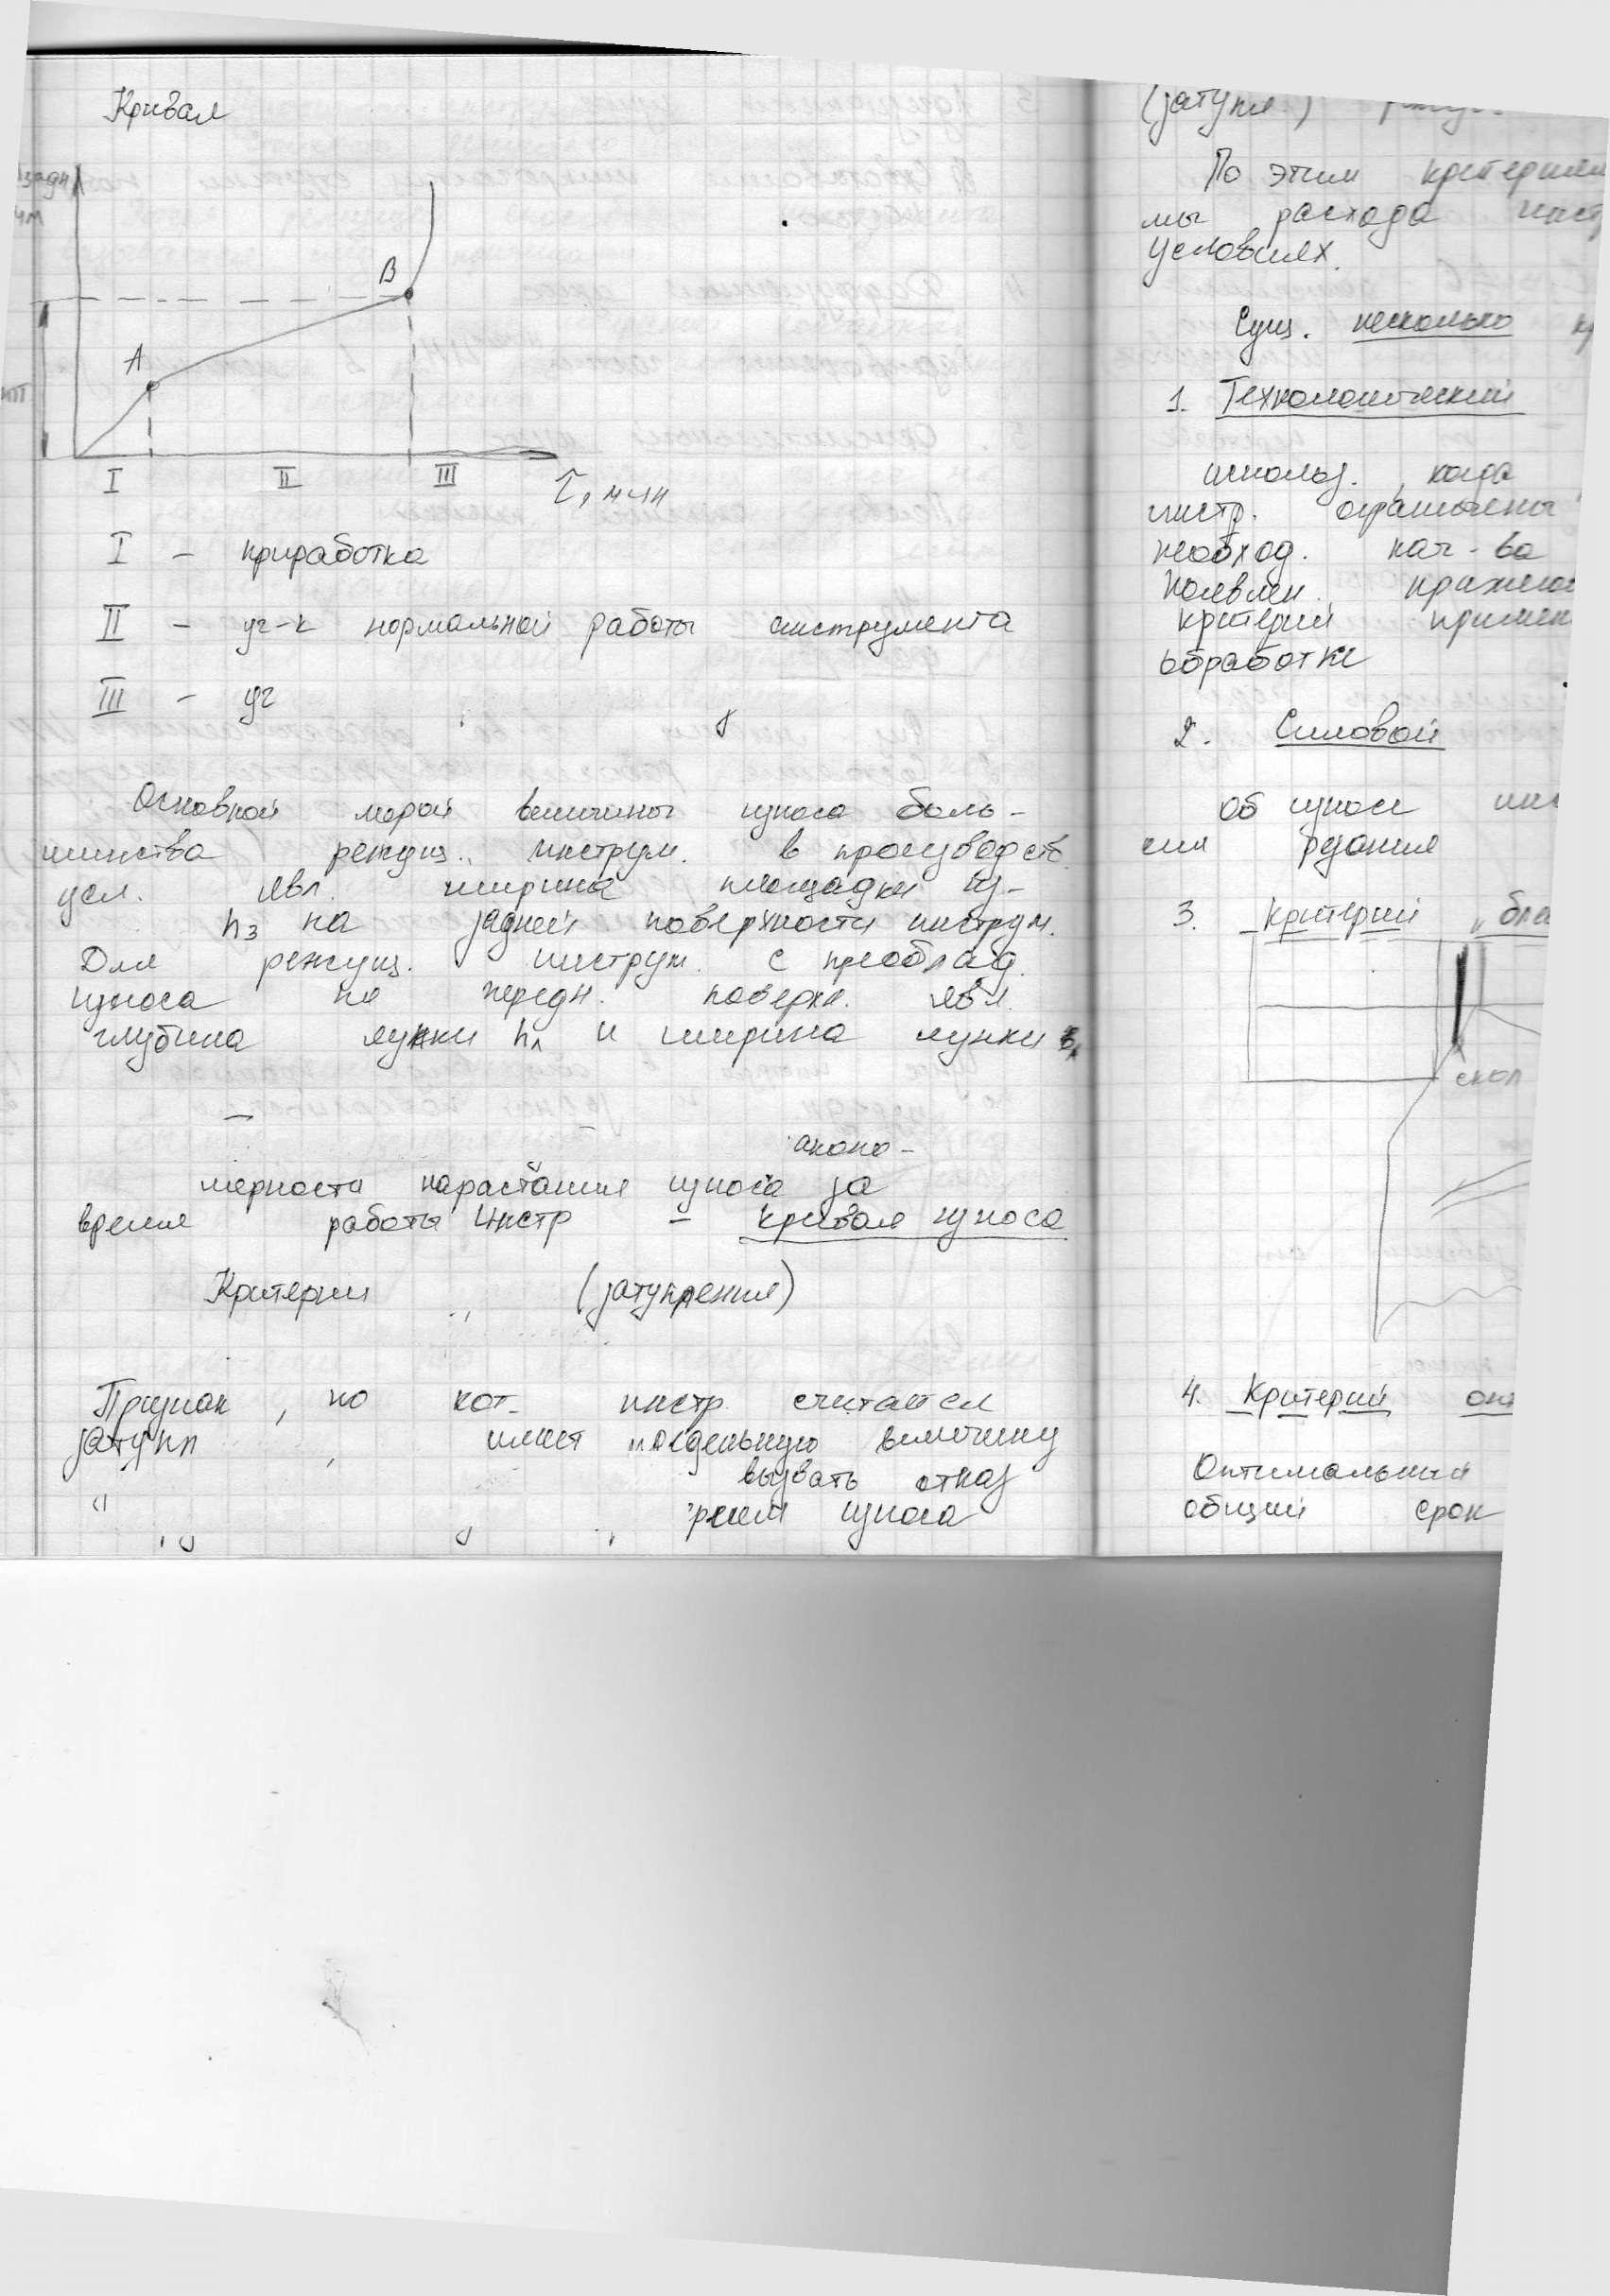 Кривая
задн
мм
B
A
опт
I II III
τ, мин
I - приработка
II - уч-к нормальной работы инструмента
III - уч
Основной мерой величины износа боль-
шинства режущ. инструм. в производств.
усл. явл. ширина площадки из-
hз на задней поверхности инструм.
Для режущ. инструм. с преоблад.
износа по передн. поверхн. явл.
глубина лунки hл и ширина лунки bл
аконо-
мерности нарастания износа за
время работы инстр - кривая износа
Критерии (затупления)
Признак, по кот. инстр. считается
затупл, имеет предельную величину
вызвать отказ
износа
(затупл.)
По этим критериям
мы расхода инст
условиях.
Сущ. несколько к
1. Технологический
использ., когда
инстр. ограничены
необход. кач-ва
появлен.
критерий примен
обработке
2. Силовой
Об износе инс
сил резания
3. Критерий "бле
скол
4. Критерий опт
Оптимальный
общий срок